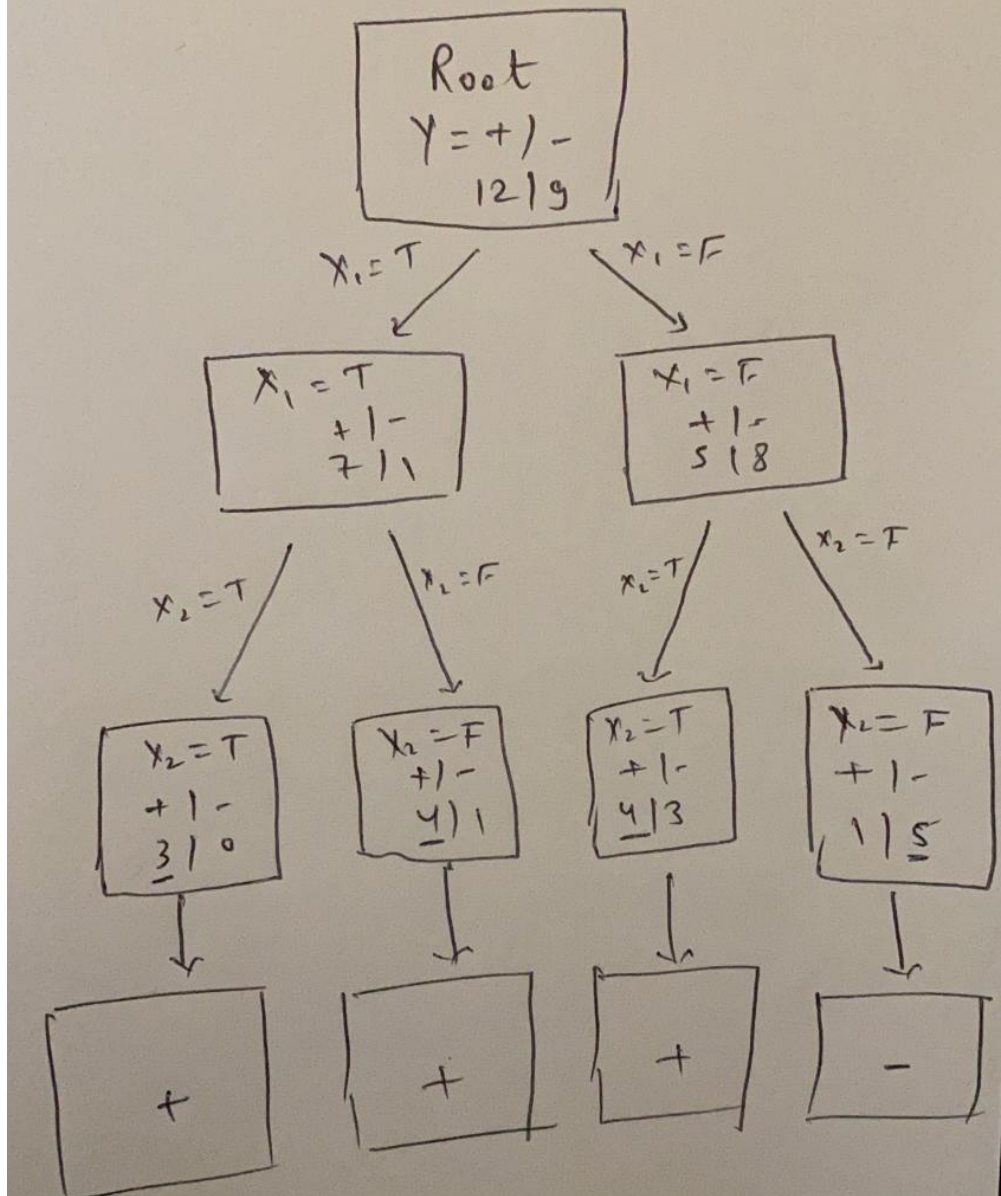 Root
Y = + | -
12 | 9
X₁ = T
X₁ = F
X₁ = T
+ | -
7 | 1
X₁ = F
+ | -
5 | 8
X₂ = T
X₂ = F
X₂ = T
X₂ = F
X₂ = T
+ | -
3 | 0
X₂ = F
+ | -
4 | 1
X₂ = T
+ | -
4 | 3
X₂ = F
+ | -
1 | 5
+
+
+
-